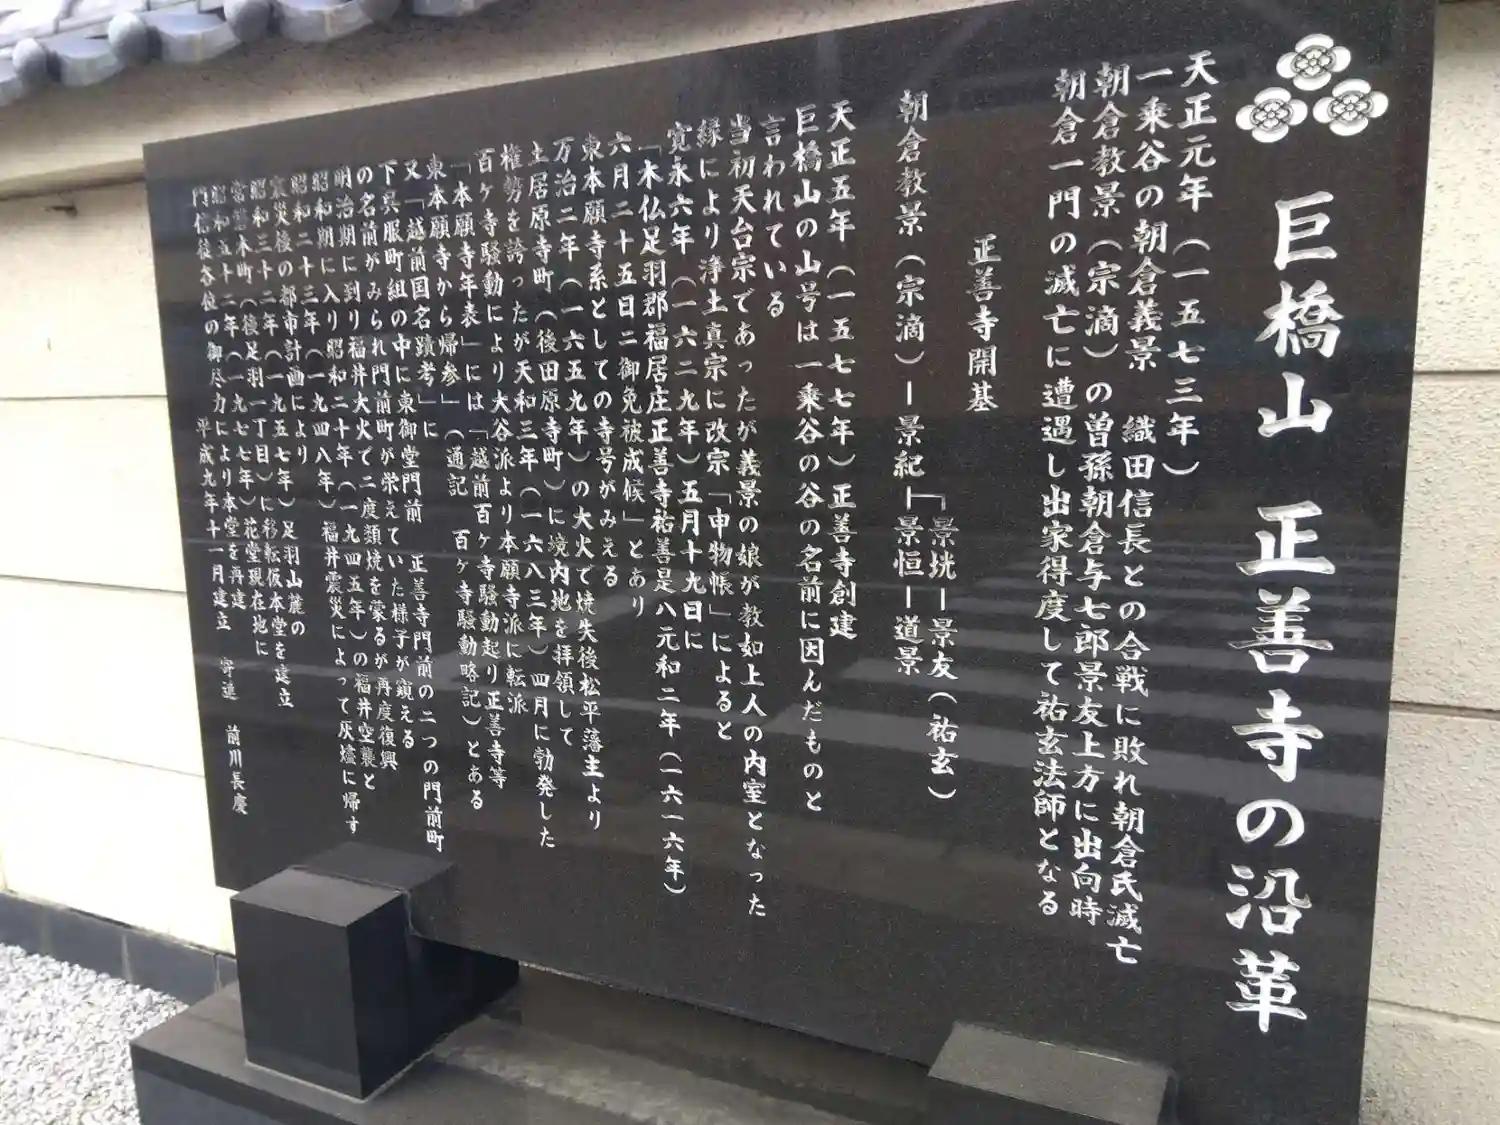 巨橋山 正善寺の沿革
天正元年(一五七三年)
一乗谷の朝倉義景 織田信長との合戦に敗れ朝倉氏滅亡
朝倉教景(宗滴)の曽孫朝倉与七郎景友上方に出向時
朝倉一門の滅亡に遭遇し出家得度して祐玄法師となる
正善寺開基
朝倉教景(宗滴)ー景紀ー景恒ー道景
景垙ー景友(祐玄)
天正五年(一五七七年)正善寺創建
巨橋山の山号は一乗谷の谷の名前に因んだものと
言われている
当初天台宗であったが義景の娘が教如上人の内室となった
縁により浄土真宗に改宗「申物帳」によると
寛永六年(一六二九年)五月十九日に
「木仏足羽郡福居庄正善寺祐善是八元和二年(一六一六年)
六月二十五日ニ御免被成候」とあり
東本願寺系としての寺号がみえる
万治二年(一六五九年)の大火で焼失後松平藩主より
土居原寺町(後田原寺町)に境内地を拝領して
権勢を誇ったが天和三年(一六八三年)四月に勃発した
百ケ寺騒動により大谷派より本願寺派に転派
「本願寺年表」には「越前百ケ寺騒動起り正善寺等
東本願寺から帰参」(通記 百ケ寺騒動略記)とある
又「越前国名蹟考」に
下呉服町組の中に東御堂門前 正善寺門前の二つの門前町
の名前がみられ門前町が栄えていた様子が窺える
明治期に到り福井大火で二度類焼を蒙るが再度復興
昭和期に入り昭和二十年(一九四五年)の福井空襲と
昭和二十三年(一九四八年)福井震災によって灰燼に帰す
震災後の都市計画により
昭和三十二年(一九五七年)足羽山麓の
常盤木町(後足羽一丁目)に移転仮本堂を建立
昭和五十二年(一九七七年)花堂現在地に
門信徒各位の御尽力により本堂を再建
平成九年十一月建立 寄進 前川長慶